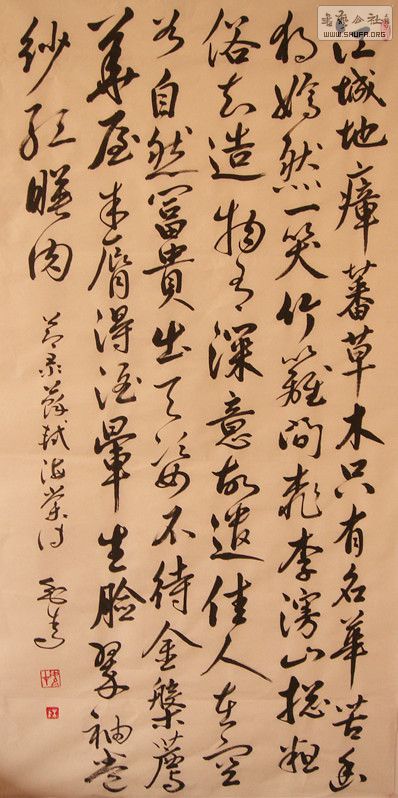 江城地瘴蕃草木只有名華苦幽
獨嫣然一笑竹籬間桃李漫山總粗
俗知造物有深意故遣佳人在空
谷自然富貴出天姿不待金槃薦
華屋朱脣得酒暈生臉翠袖卷
紗紅暎肉
节录蘇軾海棠诗
書藝公社
WWW.SHUFA.ORG